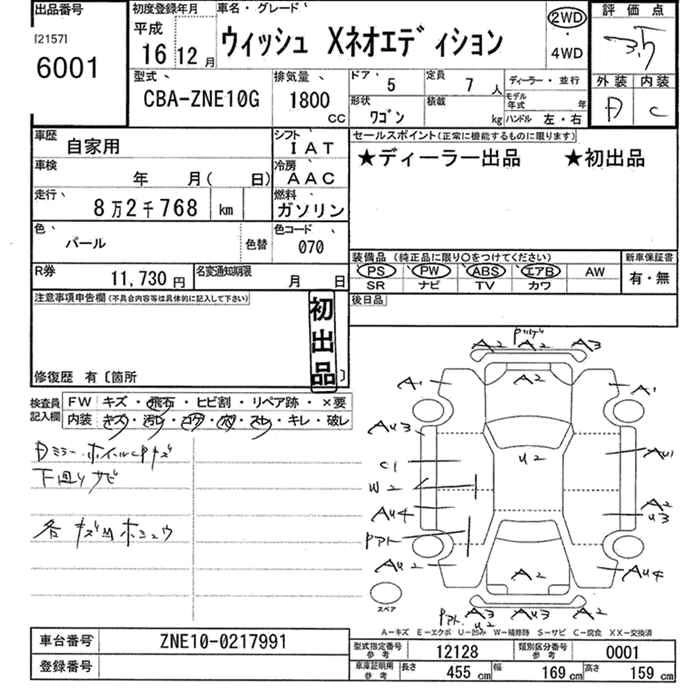 出品番号
[2157]
6001
初度登録年月
平成
16 12 月
車名・グレード
ウィッシュ Xネオエディション
2WD
・
4WD
評価点
3.5
外装 内装
D C
型式
CBA-ZNE10G
排気量
1800
CC
ドア 5
定員 7 人
形状 ワゴン
積載 kg
ディーラー・並行
モデル年式 年
ハンドル 左・右
車歴
自家用
シフト
IAT
車検
年 月( 日)
冷房
AAC
走行
8万2千768 km
燃料
ガソリン
色
パール
色替
色コード
070
R券
11,730 円
名変通知期限
月 日
セールスポイント(正常に機能するものに限ります)
★ディーラー出品 ★初出品
装備品 (純正品に限り○をつけてください)
PS PW ABS エアB AW
SR ナビ TV カワ
新車保証書
有・無
後日品
注意事項申告欄(不具合内容等は具体的に記入して下さい)
初出品
修復歴 有〔箇所 〕
検査員記入欄
FW キズ・飛石・ヒビ割・リペア跡・×要
内装 キズ・汚レ・コゲ・穴・スレ・キレ・破レ
下廻りサビ
各キズ凹ホシュウ
A2 A2 A3
A1 A2 A1
AU3
C1 U2 AU1
W2
AU4 A2
U3
AU2 A2 AU4
A3 AU3 A2
U2
スペア
A－キズ E－エクボ U－凹み W－補修跡 S－サビ C－腐食 XX－交換済
車台番号
ZNE10-0217991
登録番号
型式指定番号 参考
12128
類別区分番号 参考
0001
車庫証明用 参考
長さ 455 cm
幅 169 cm
高さ 159 cm